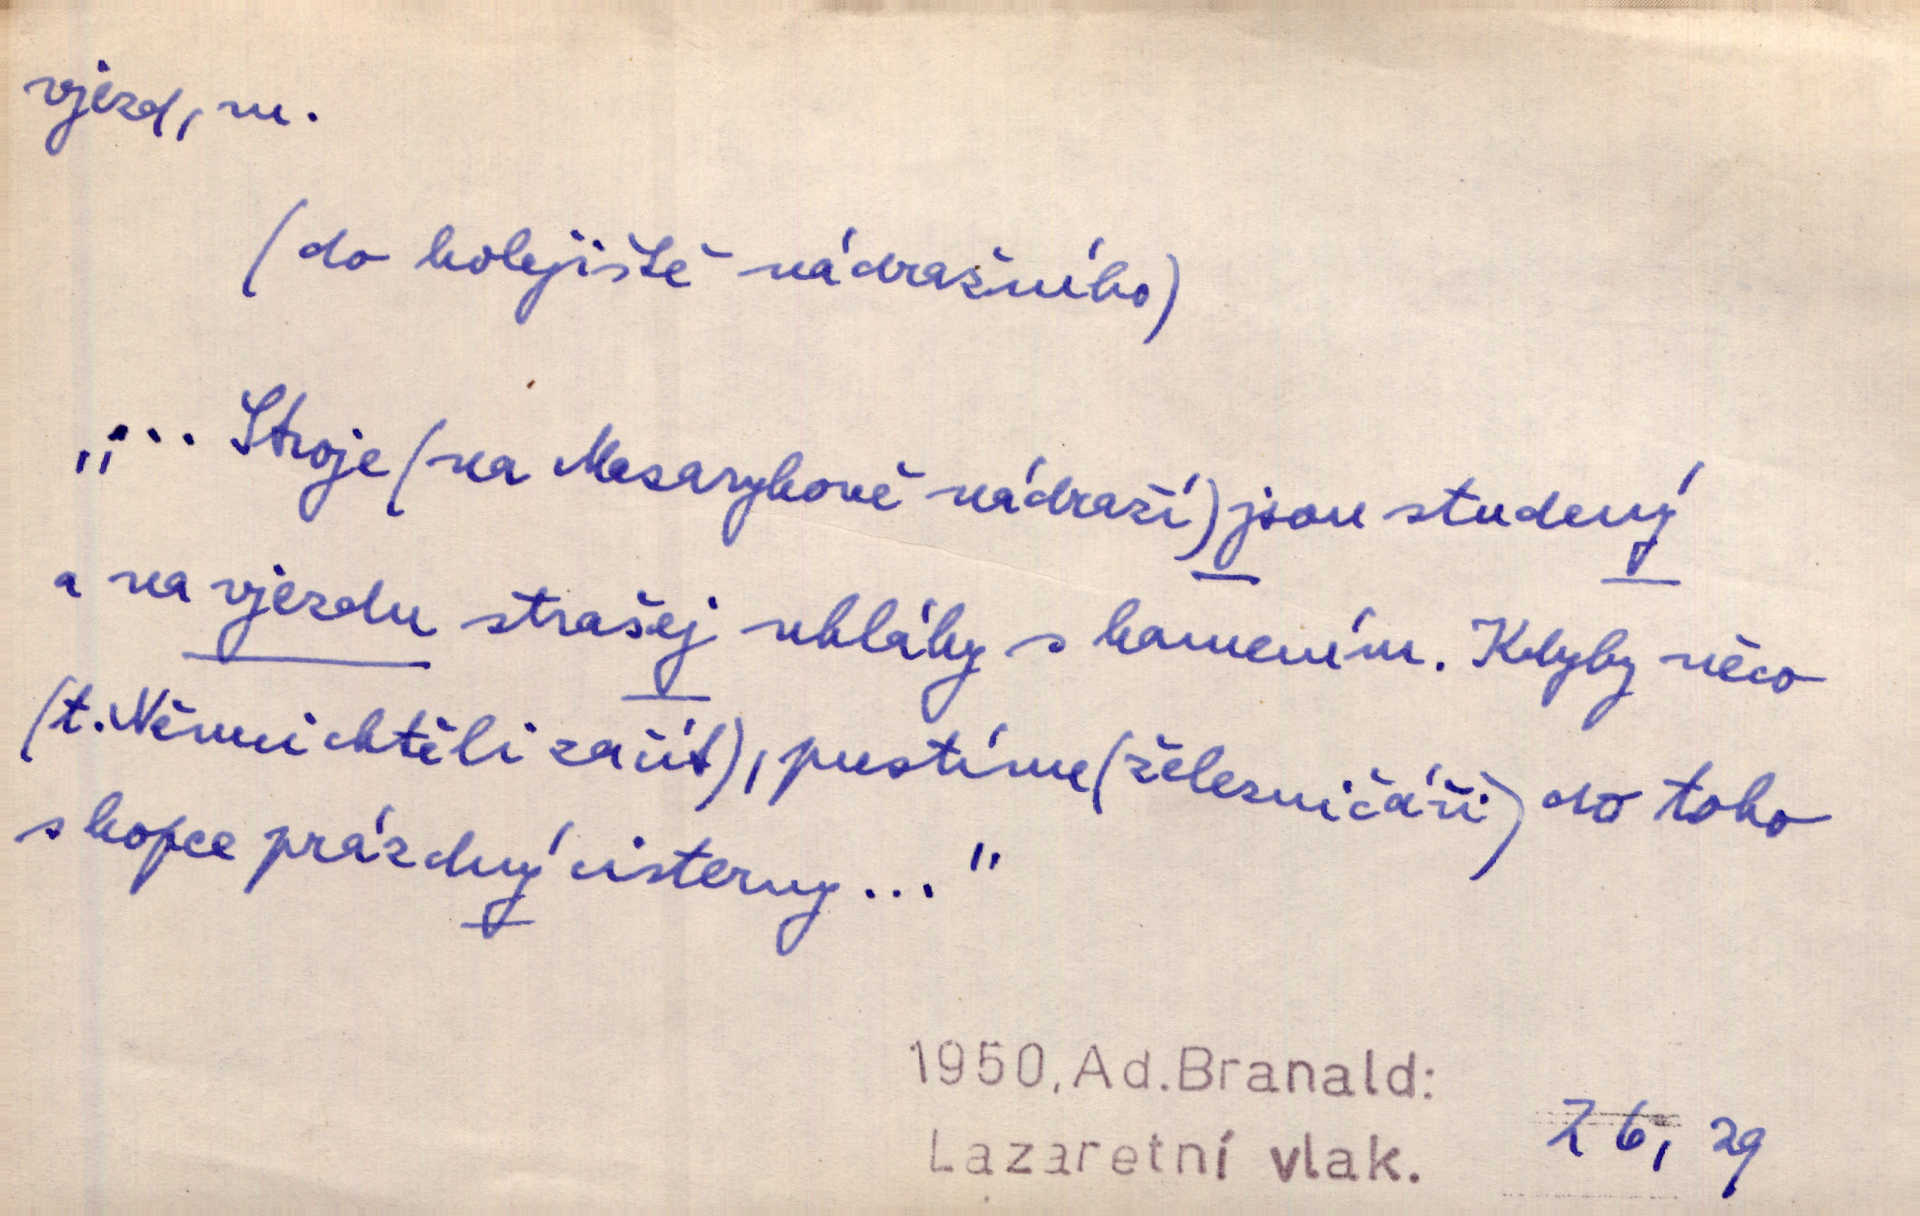 vjezd, m.
(do kolejiště nádražního)
„... Stroje (na Masarykově nádraží) jsou studený
a na vjezdu strašej uhláky s kamením. Kdyby něco
(t. Němci chtěli začít), pustíme (železničáři) do toho
s kopce prázdný cisterny..."
1950, Ad. Branald:
Lazaretní vlak.
76, 29